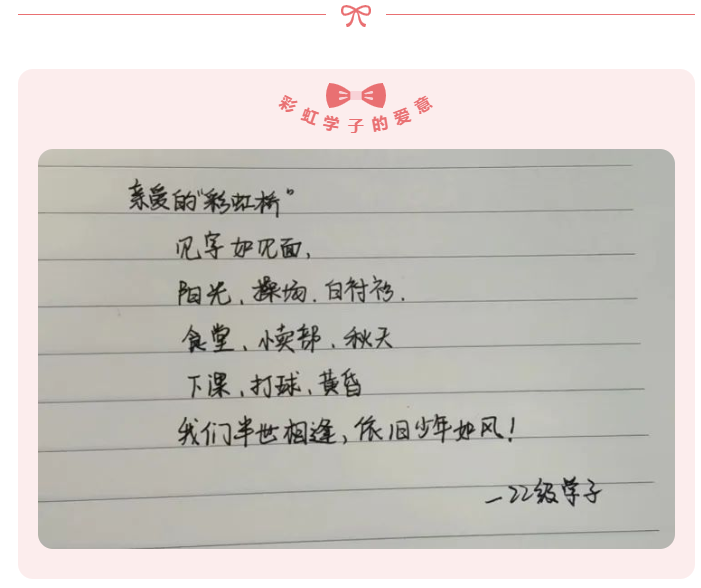 彩虹学子的爱意
亲爱的“彩虹桥”
见字如见面,
阳光、操场、白衬衫、
食堂、小卖部、秋天
下课、打球、黄昏
我们半世相逢,依旧少年如风!
—22级学子